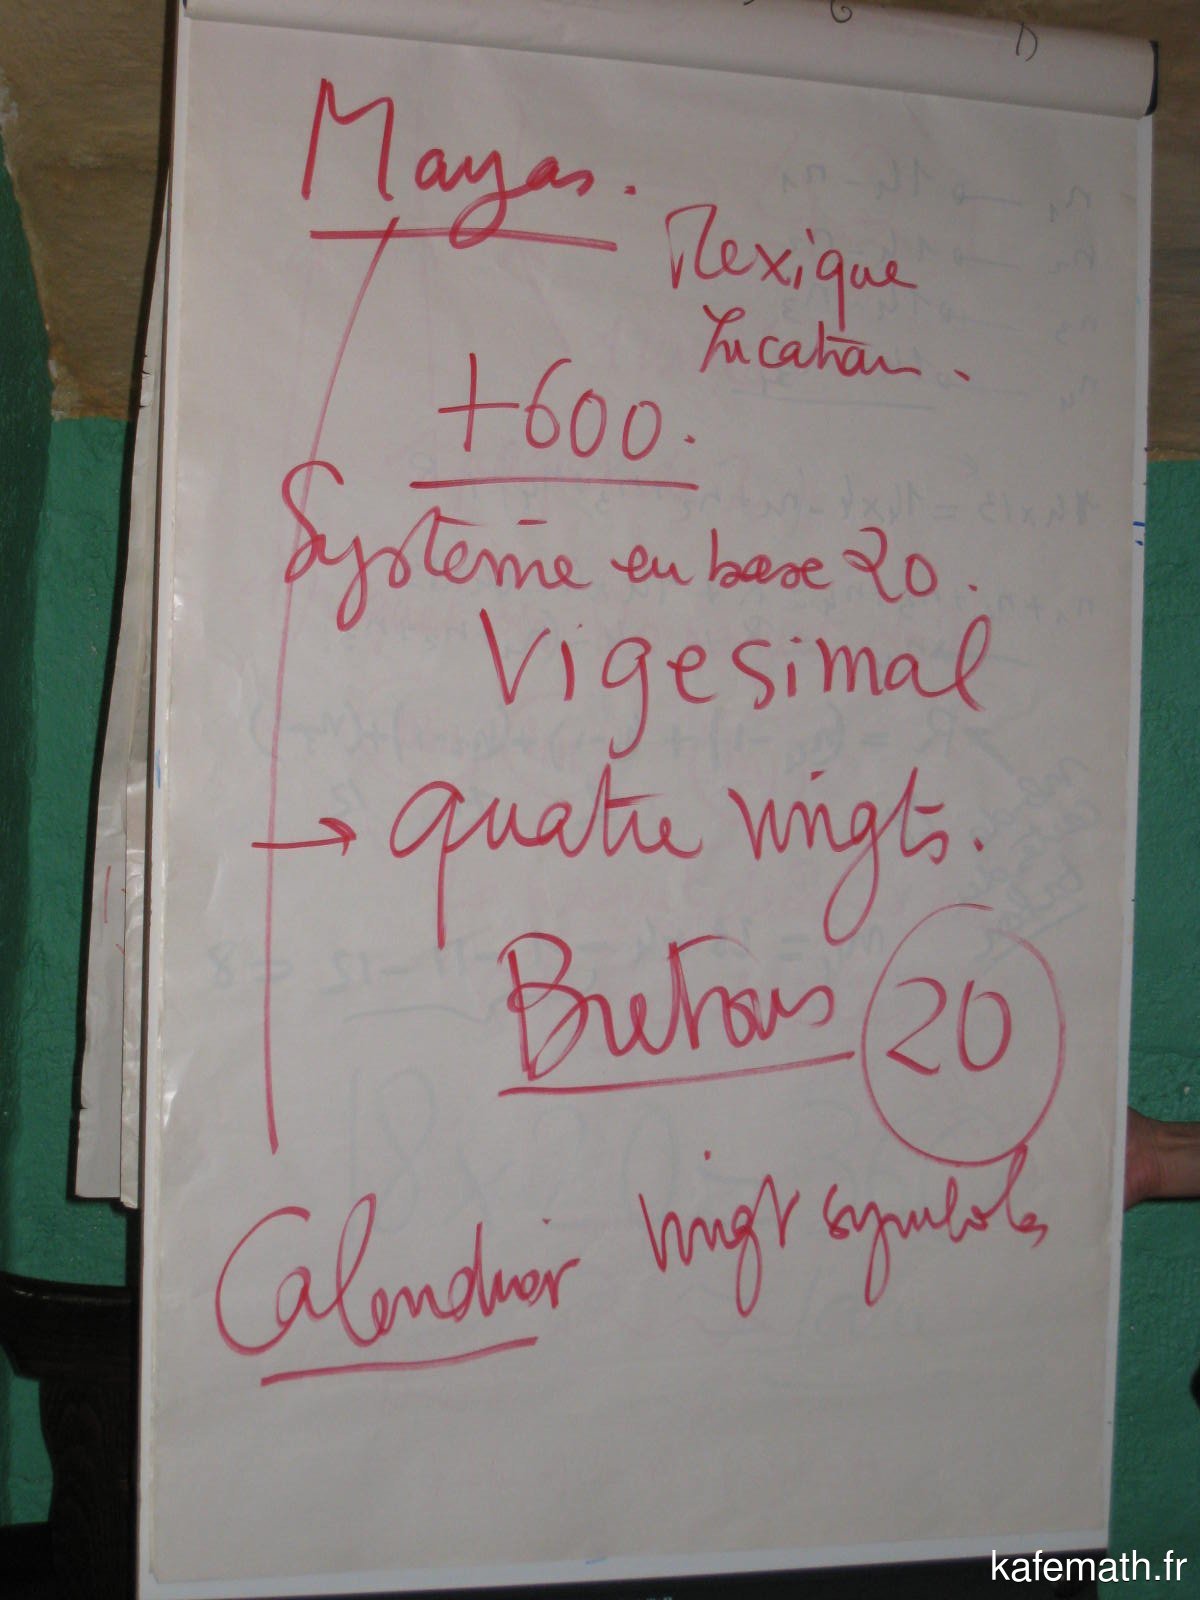 Mayas.
Mexique
Yucatan.
+600.
Système en base 20.
Vigesimal
→ quatre vingts.
Bretons 20
vingt symboles
Calendrier
kafemath.fr